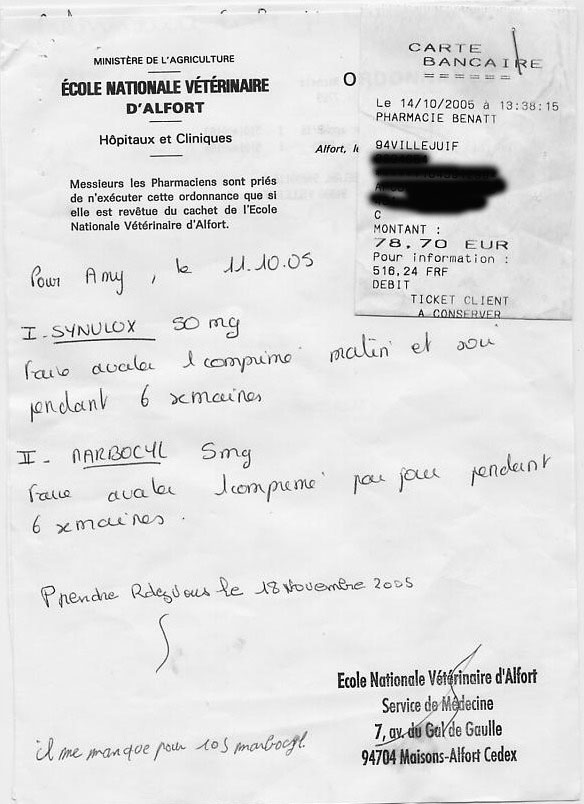 MINISTÈRE DE L'AGRICULTURE
ÉCOLE NATIONALE VÉTÉRINAIRE
D'ALFORT
Hôpitaux et Cliniques
Messieurs les Pharmaciens sont priés
de n'exécuter cette ordonnance que si
elle est revêtue du cachet de l'Ecole
Nationale Vétérinaire d'Alfort.
O
Alfort, le
CARTE
BANCAIRE
======
Le 14/10/2005 à 13:38:15
PHARMACIE BENATT
94VILLEJUIF
C
MONTANT :
78,70 EUR
Pour information :
516,24 FRF
DEBIT
TICKET CLIENT
A CONSERVER
Pour Amy, le 11.10.05
I - SYNULOX 50 mg
Faire avaler 1 comprimé matin et soir
pendant 6 semaines
II - MARBOCYL 5mg
Faire avaler 1 comprimé par jour pendant
6 semaines.
Prendre Rdez Vous le 18 Novembre 2005
Ecole Nationale Vétérinaire d'Alfort
Service de Médecine
7, av. du Gal de Gaulle
94704 Maisons-Alfort Cedex
il me manque pour 10 j marbocyl